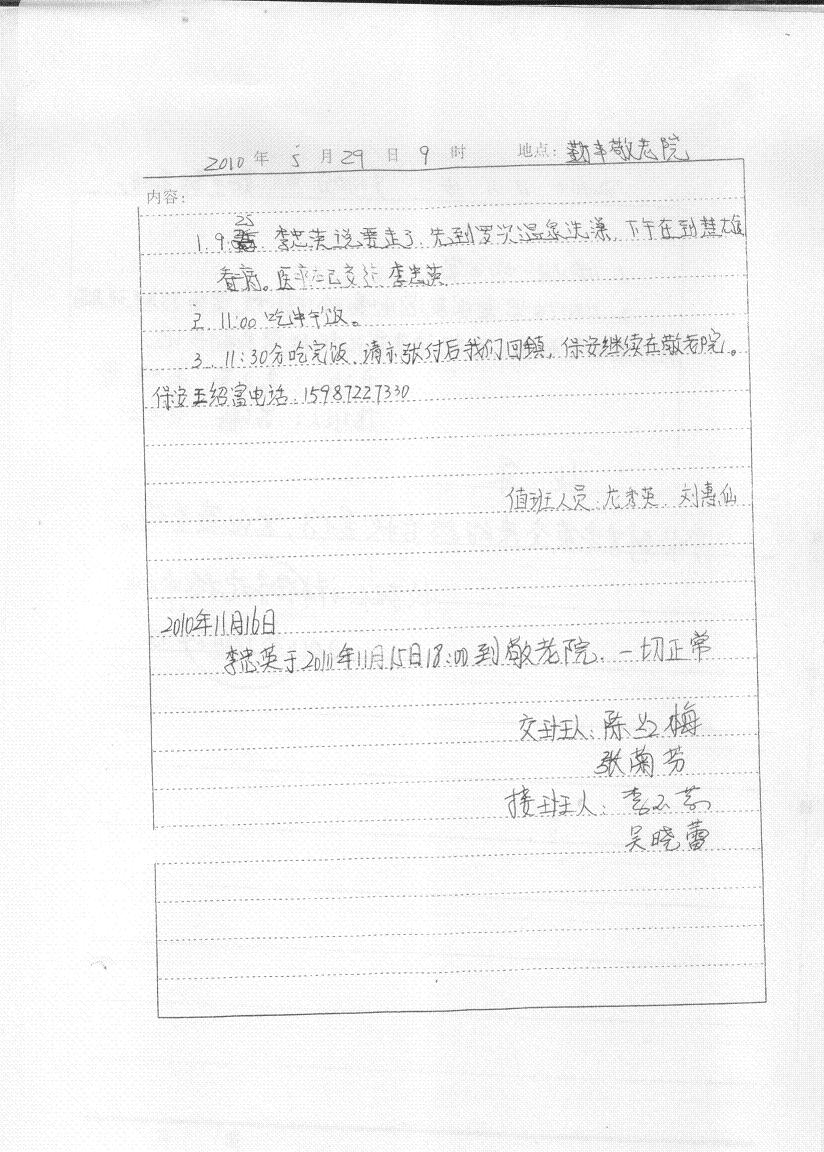 2010年 5月29日 9时 地点: 勤丰敬老院
内容:
1. 9.25 李忠英说要走了. 先到罗次温泉洗澡, 下午在到楚雄
看病。医 已交 李忠英
2. 11:00吃中午饭。
3. 11:30分吃完饭. 请示张付后我们回镇, 保安继续在敬老院。
保安王绍富电话. 15987227330
值班人员: 尤秀英. 刘惠仙
2010年11月16日
李忠英于2010年11月15日18:00到敬老院. 一切正常
交班人: 陈 梅
张菊芬
接班人: 李
吴晓蕾